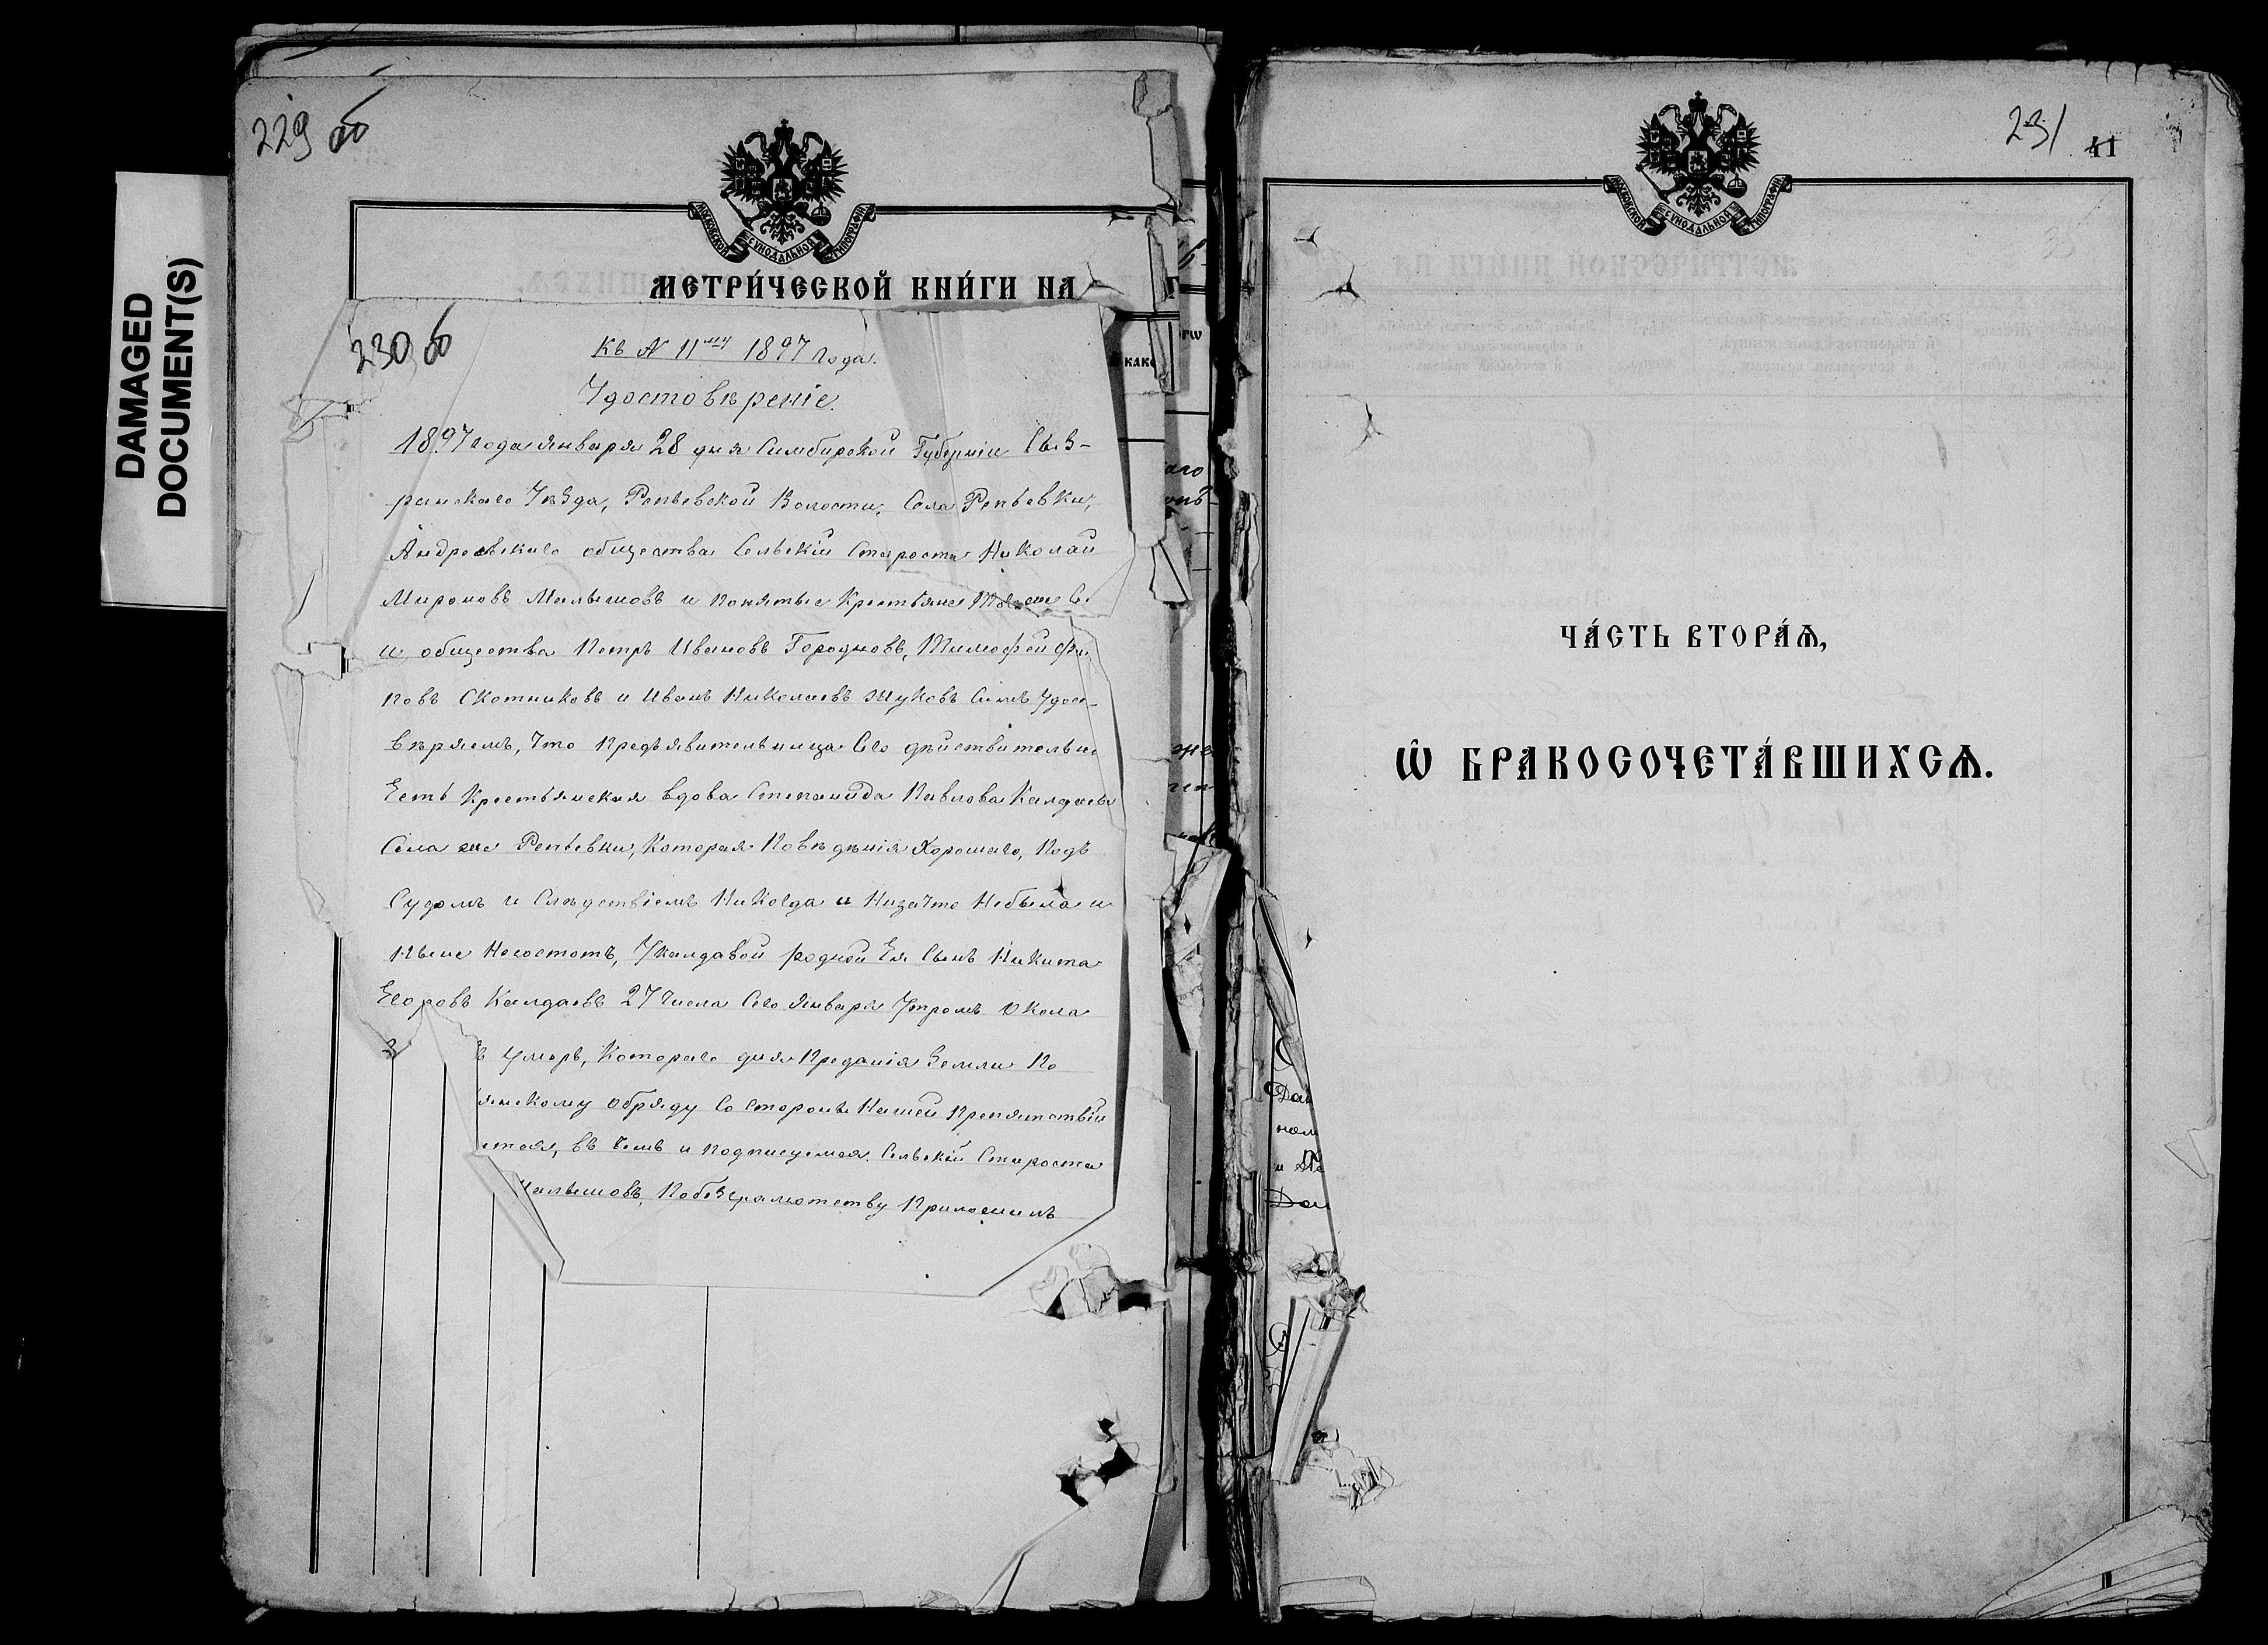 DAMAGED
DOCUMENT(S)
229 об
МОСКОВСКОЙ СѴНОДАЛЬНОЙ ТИПОГРАФІИ
МЕТРИ́ЧЕСКОЙ КНИ́ГИ НА
230 об
Къ № 11му 1897 года.
Удостовѣреніе.
1897 года Января 28 дня Симбирской Губерніи Сыз-
ранскаго Уѣзда, Репьевской Волости, Села Репьевки,
Андреевскаго общества Сельскій Староста Николай
Мироновъ Малышовъ и понятые Крестьяне
и общества Петръ Ивановъ Городновъ, Тимофей Фи
повъ Скотниковъ и Иванъ Николаевъ Жуковъ Симъ Удост-
вѣряемъ, Что Предъявительница Сего дѣйствительно
Есть Крестьянская вдова Степанида Павлова Калдаева
Села же Репьевки, Которая Поведѣнія Хорошаго, Подъ
Судомъ и Слѣдствіемъ Никогда и Низачто Небыла и
Ныне Несостотъ, Укалдавой родной Ея Сынъ Никита
Егоровъ Калдаевъ 27 Числа Сего Января Утромъ Окола
ъ Умеръ, Котораго для Преданія Земли По
янскому Обряду Состороны Нашей Препятствій
ется, въ Чемъ и подписуемся. Сельскій Староста
Малышовъ, Побезграмотству Приложилъ
231
41
МОСКОВСКОЙ СѴНОДАЛЬНОЙ ТИПОГРАФІИ
ЧА́СТЬ ВТОРА́Ѧ,
Ѿ БРАКОСОЧЕТА́ВШИХСѦ.